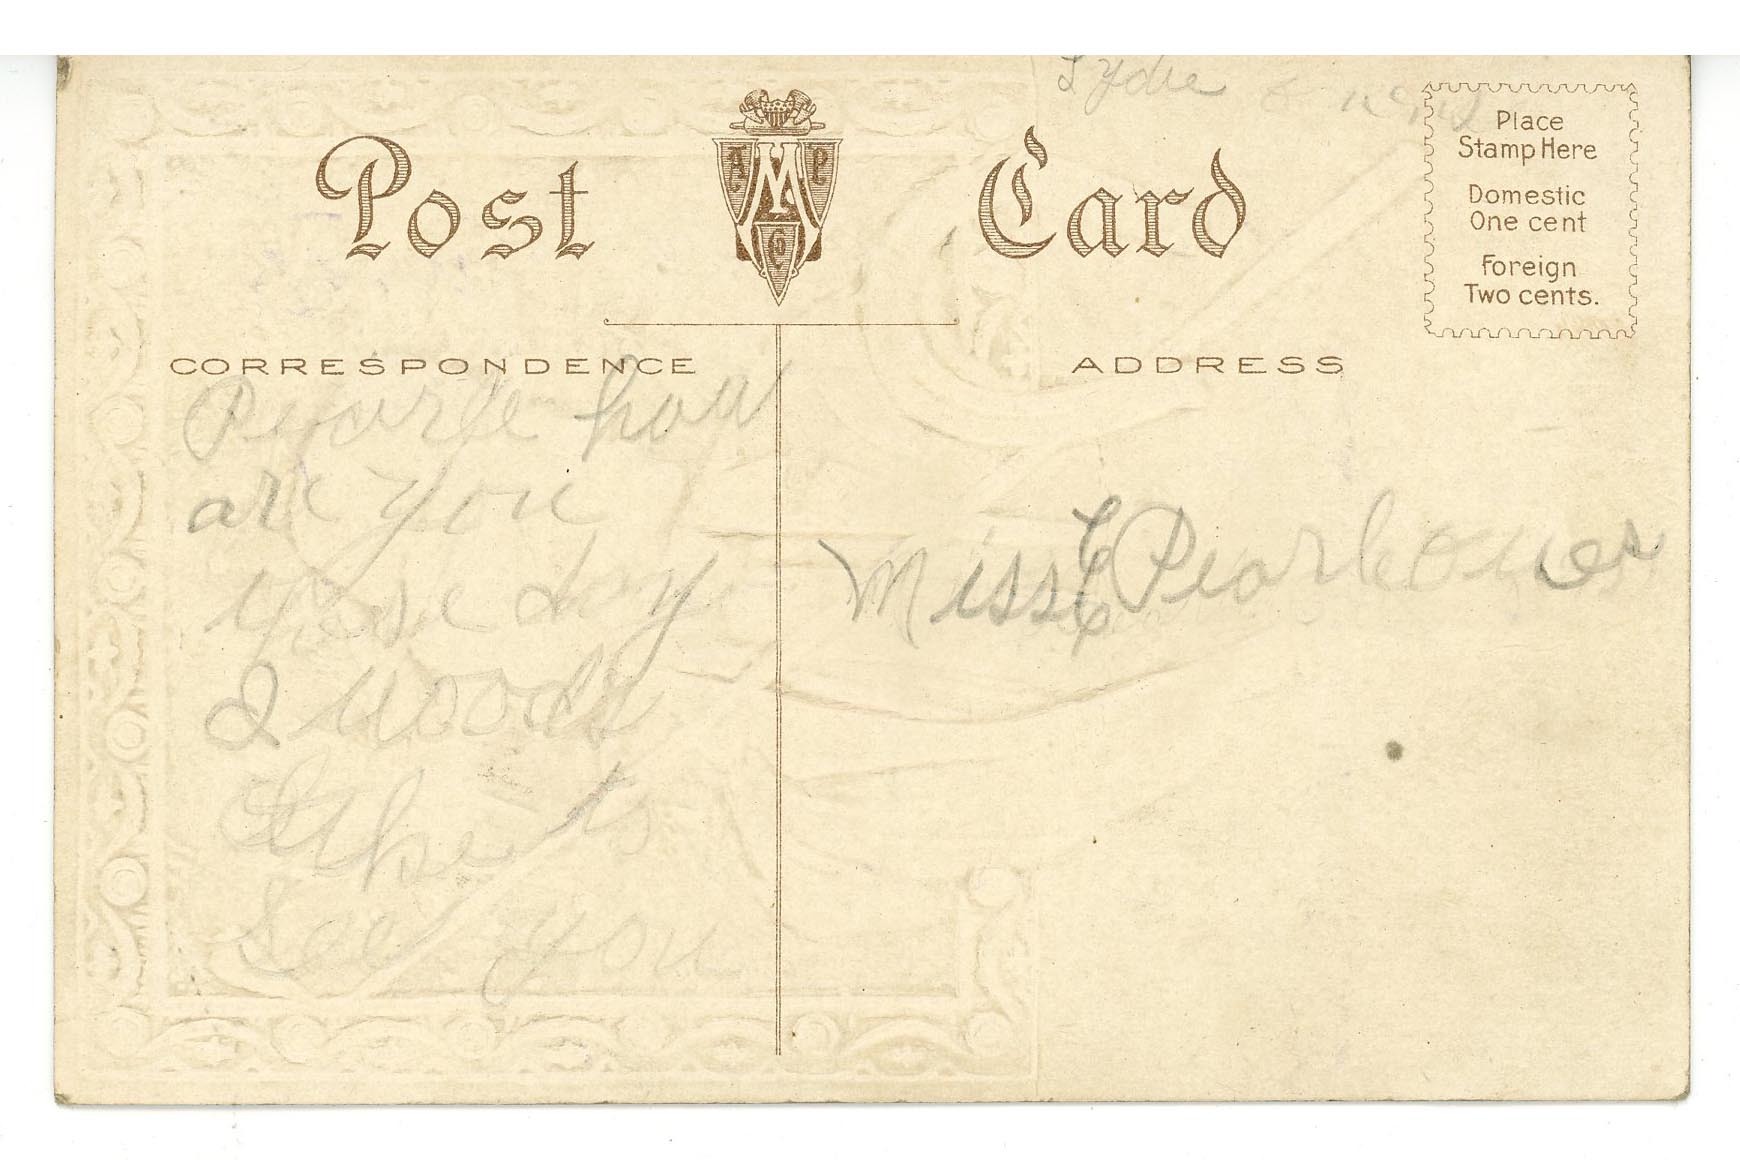 Lydie
Post Card
A M P Co
Place
Stamp Here
Domestic
One cent
Foreign
Two cents.
CORRESPONDENCE
Pearle how
are you
these day
I woods
like to
see you
ADDRESS
Miss